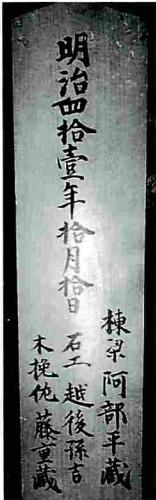 明治四拾壹年拾月拾日
棟梁 阿部平藏
石工 越後孫吉
木挽 佐藤重藏